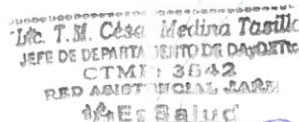 Lic. T.M. César Medina Tasilla
JEFE DE DEPARTAMENTO DE
CTMP: 3642
RED ASISTENCIAL
EsSalud